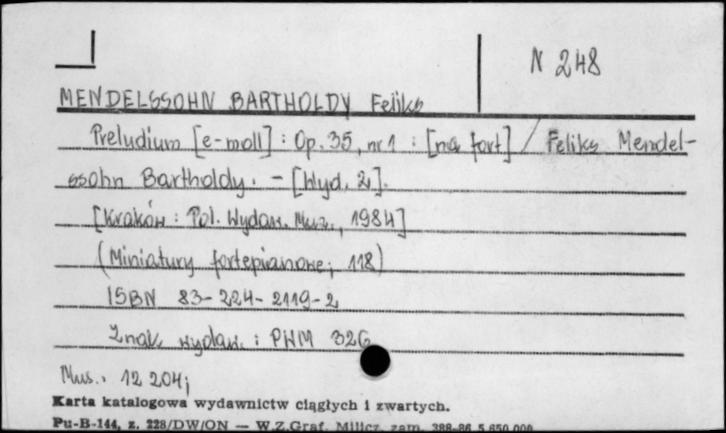 N 248
MENDELSSOHN BARTHOLDY Feliks
Preludium [e-moll] : Op. 35, nr 1 : [na fort] / Feliks Mendel-
ssohn Bartholdy. - [Wyd. 2].
[Kraków : Pol. Wydaw. Muz., 1984]
(Miniatury fortepianowe; 118)
ISBN 83-224-2119-2
Znak. wydaw. : PWM 326
Mus. 12 204;
Karta katalogowa wydawnictw ciągłych i zwartych.
Pu-B-144, z. 228/DW/ON — W.Z.Graf. Milicz, zam. 388-86 5.650.000